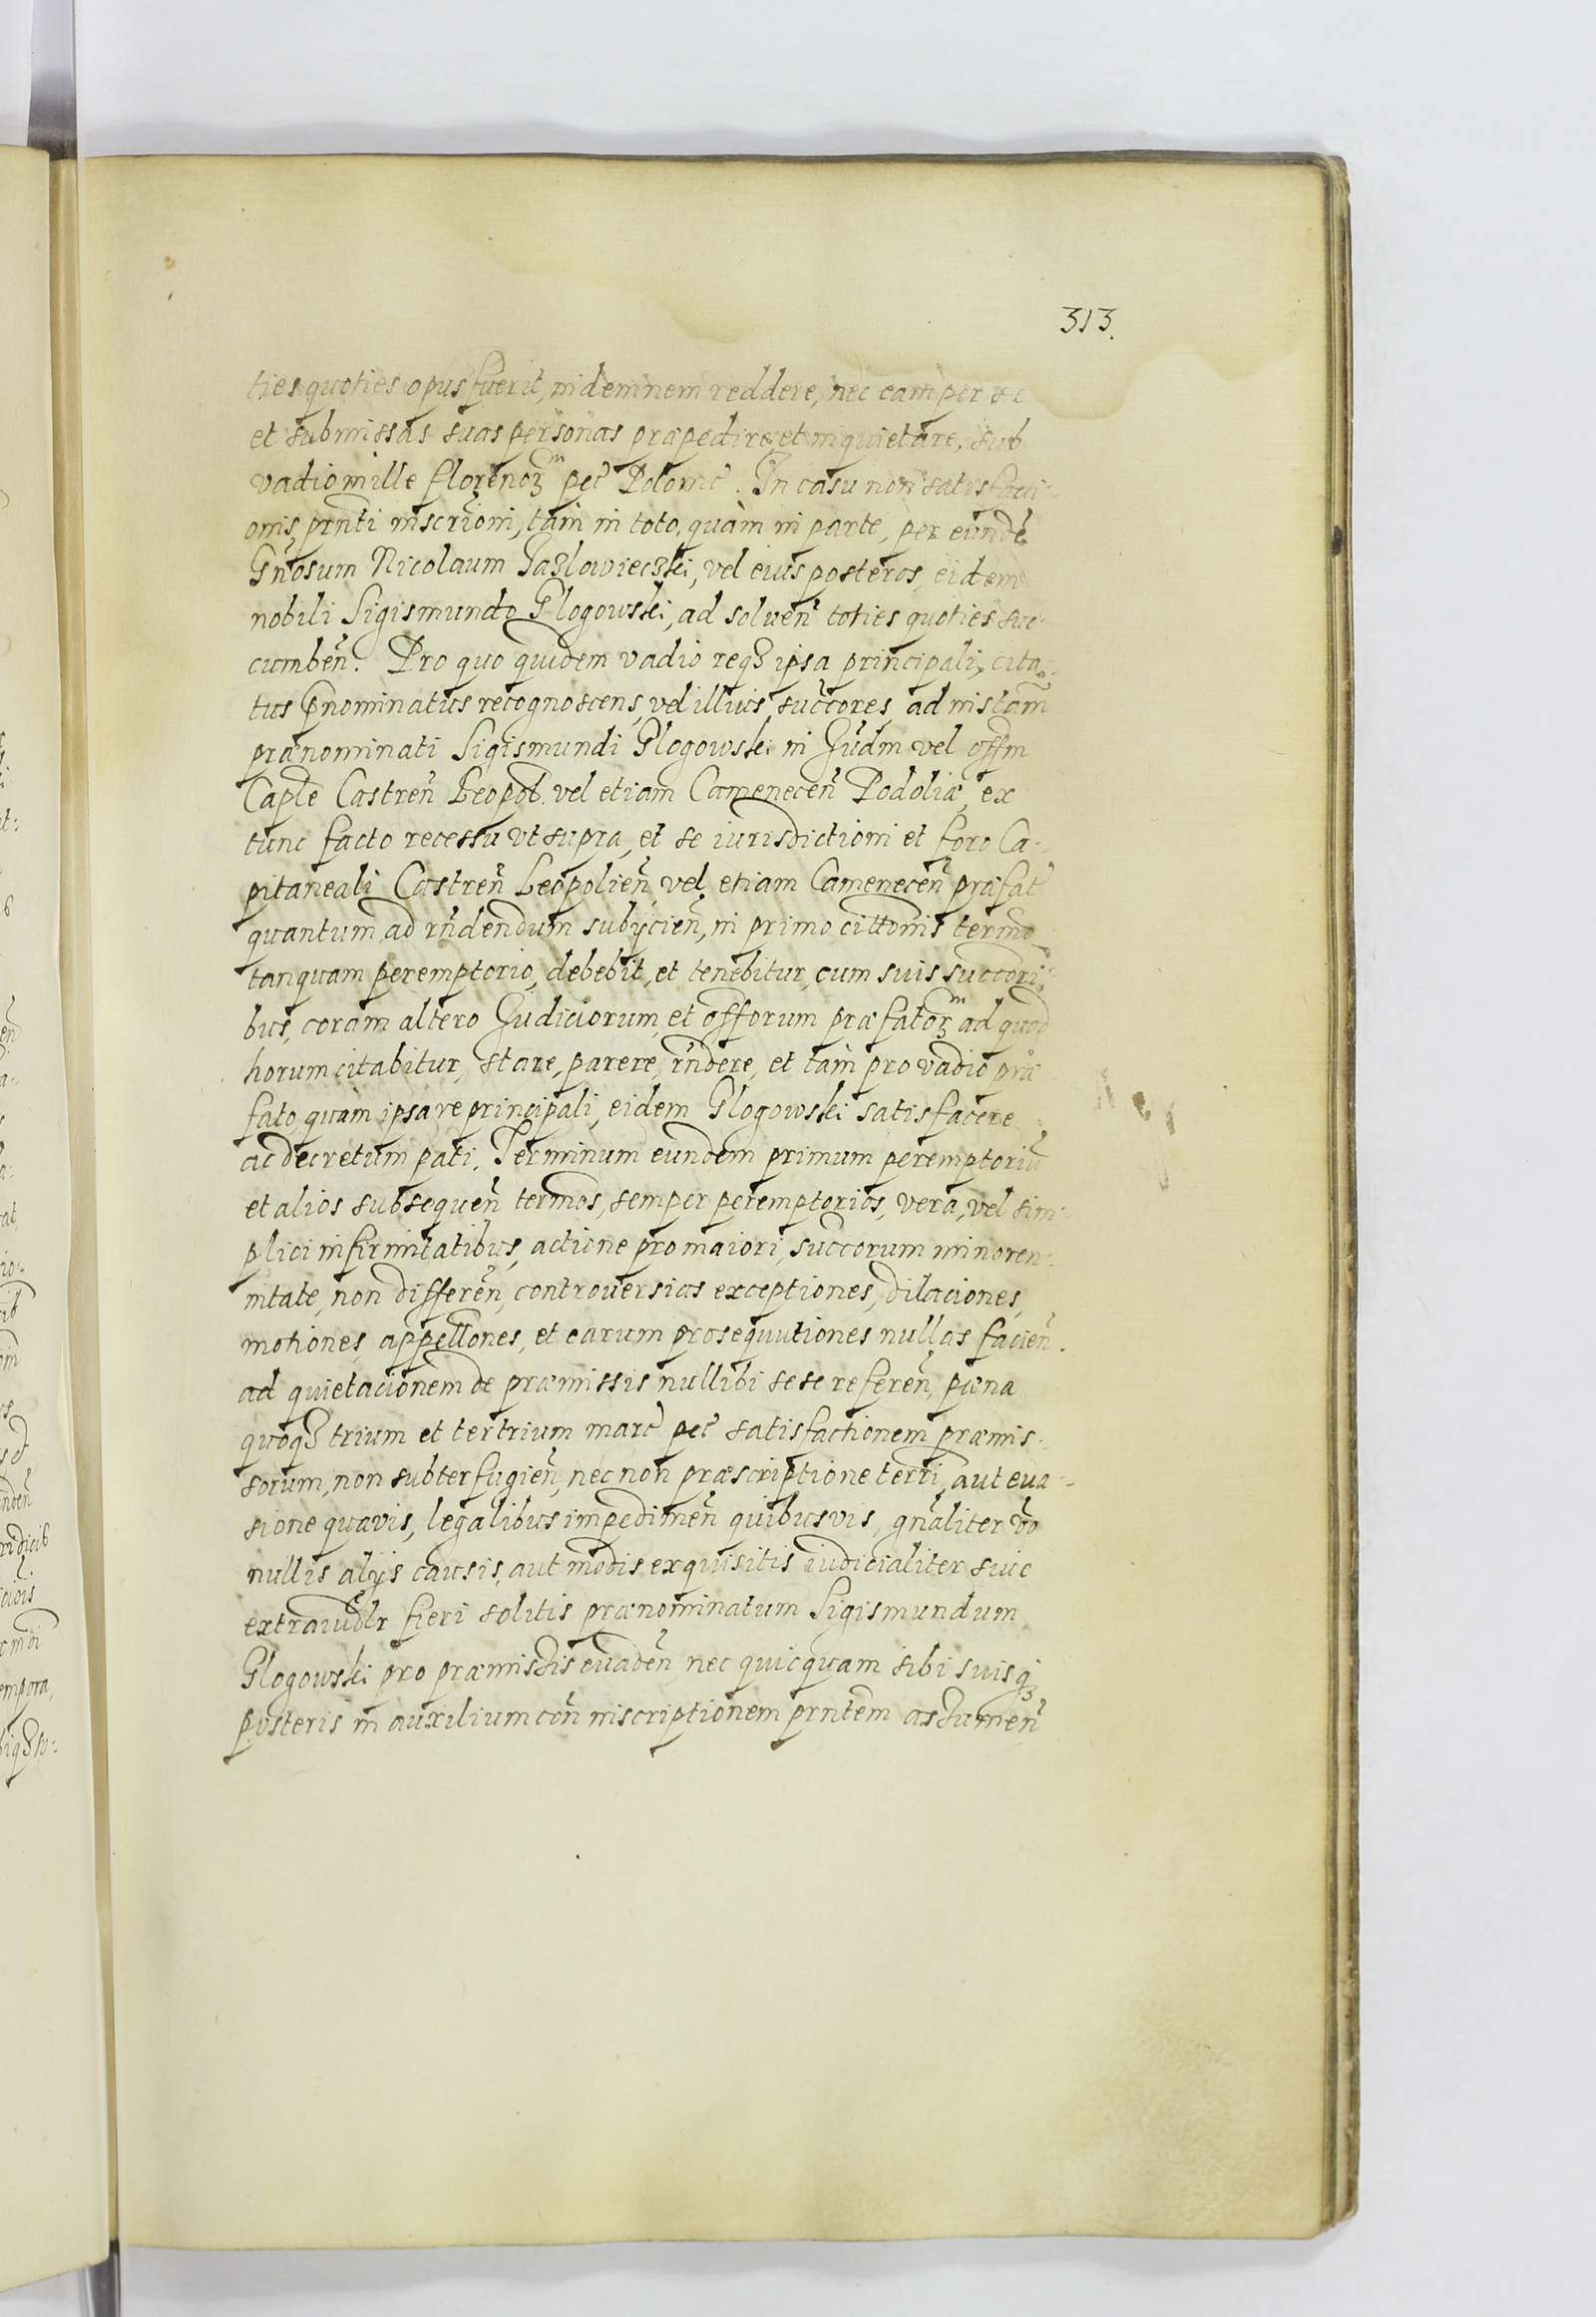 313.
ties quoties opus fuerit, indemnem reddere, nec eam per se
et submissas suas personas præpedire, et inquietare, sub
vadio mille florenoꝝ pec̃ Polonic̃. In casu non satisfacti-
onis prñti inscrip̃ioni, tàm in toto, quàm in parte, per eundẽ
Gñosum Nicolaum Jazlowieczki, vel eius posteros, eidem
nobili Sigismundo Glogowski, ad solueñ toties quoties suc-
cumbeñ. Pro quo quidem vadio reqꝫ ipsa principali, cita-
tus p̃nominatus recognoscens, vel illius succ̃ores, ad instam̃
prænominati Sigismundi Glogowski in Judm̃ vel offm̃
Caple Castreñ Leopol. vel etiam Cameneceñ Podoliæ, ex
tunc facto recessu vt supra, et se iurisdictioni et foro Ca-
pitaneali Castreñ Leopolieñ, vel etiam Cameneceñ præfat̃
quantum ad rñdendum subÿcieñ, in primo cittonis term̃o
tanquam peremptorio, debebit, et tenebitur, cum suis succ̃ori-
bus, coram altero Judiciorum, et offorum præfatoꝝ ad quod
horum citabitur, stare, parere, rñdere, et tàm pro vadio præ
fato, quàm ipsa re principali, eidem Glogowski satisfacere
ac decretum pati. Terminum eundem primum peremptoriũ
et alios subsequeñ term̃os, semper peremptorios, vera, vel sim-
plici infirmitatibus, actione pro maiori, succ̃orum minoren-
nitate, non differeñ, controuersias exceptiones, dilaciones,
motiones, appellones, et earum prosequutiones nullas facieñ.
ad quietacionem de præmissis nullibi sese refereñ, pæna
quoqꝫ trium et ter trium marc̃ pec̃ satisfactionem præmis-
sorum, non subterfugieñ, nec non præscriptione terrĩ, aut eua-
sione quavis, legalibus impedimeñ quibusvis, gñaliter ṽo
nullis alÿs causis, aut modis exquisitis iudicialiter siue
extraiud̃lr fieri solitis prænominatum Sigismundum
Glogowski pro præmissis euadeñ, nec quicquam sibi suisqꝫ
posteris in auxilium coñ inscriptionem prñtem assumeñ